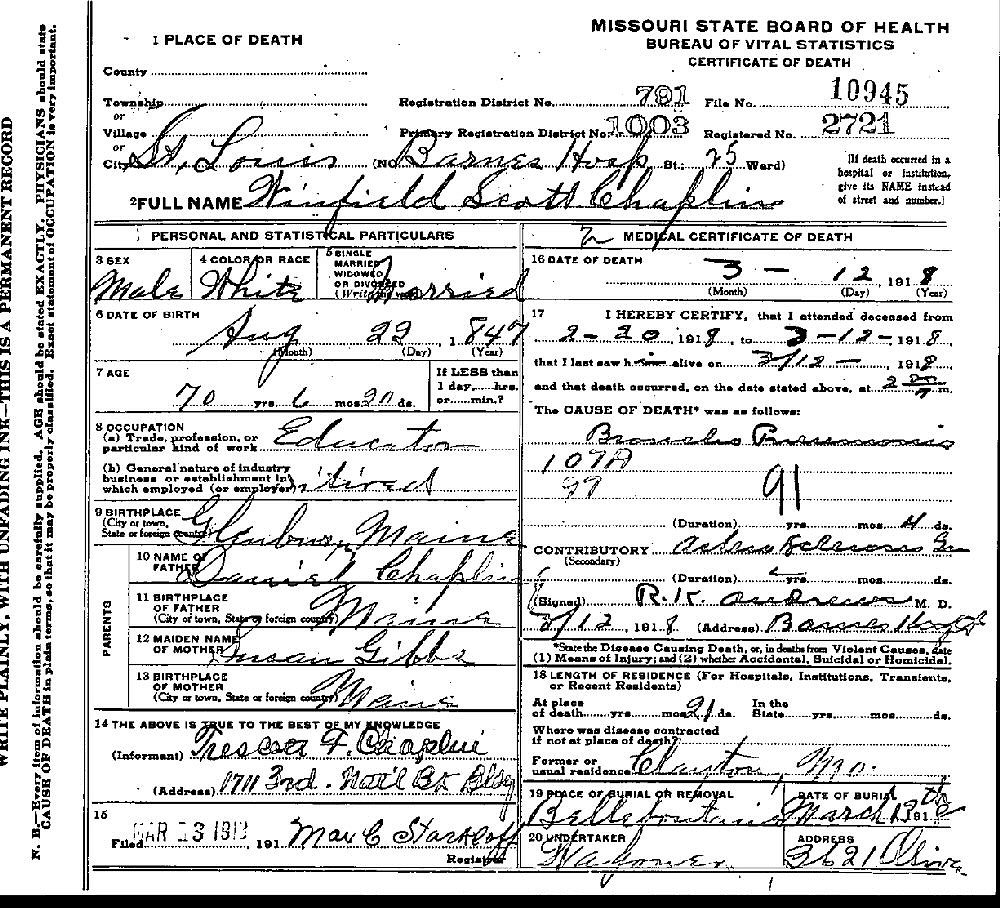 MISSOURI STATE BOARD OF HEALTH
BUREAU OF VITAL STATISTICS
CERTIFICATE OF DEATH
1 PLACE OF DEATH
County
Township
or
Village
or
City St. Louis (No. Barnes Hosp St.; 25 Ward)
Registration District No. 791 File No. 10945
Primary Registration District No. 1003 Registered No. 2721
[If death occurred in a
hospital or institution,
give its NAME instead
of street and number.]
2 FULL NAME Winfield Scott Chaplin
PERSONAL AND STATISTICAL PARTICULARS
3 SEX
Male
4 COLOR OR RACE
White
5 SINGLE
MARRIED
WIDOWED
OR DIVORCED
(Write the word)
Married
6 DATE OF BIRTH
Aug 22, 1847
(Month) (Day) (Year)
7 AGE
70 yrs. 6 mos. 20 ds.
If LESS than
1 day,......hrs.
or......min.?
8 OCCUPATION
(a) Trade, profession, or
particular kind of work Educator
(b) General nature of industry
business or establishment in
which employed (or employer)
9 BIRTHPLACE
(City or town,
State or foreign country) Glenburn, Maine
PARENTS
10 NAME OF
FATHER Daniel Chaplin
11 BIRTHPLACE
OF FATHER
(City or town, State or foreign country) Maine
12 MAIDEN NAME
OF MOTHER Susan Gibbs
13 BIRTHPLACE
OF MOTHER
(City or town, State or foreign country) Maine
14 THE ABOVE IS TRUE TO THE BEST OF MY KNOWLEDGE
(Informant) F. Chaplin
(Address) 1711 3rd. Nat'l Bk Bldg
15
Filed MAR 13 1918, 191 Max C Starkloff
Registrar
MEDICAL CERTIFICATE OF DEATH
16 DATE OF DEATH
3 - 12, 1918
(Month) (Day) (Year)
17 I HEREBY CERTIFY, that I attended deceased from
2-20, 1918, to 3-12-, 1918
that I last saw him alive on 3/12-, 1918
and that death occurred, on the date stated above, at 2 m.
The CAUSE OF DEATH* was as follows:
Broncho Pneumonia
107A
97
91
(Duration) yrs. mos. 4 ds.
CONTRIBUTORY
(Secondary)
(Duration) yrs. mos. ds.
(Signed) R.K. Andrews M. D.
3/12, 1918 (Address) Barnes Hospt
*State the Disease Causing Death, or, in deaths from Violent Causes, state
(1) Means of Injury; and (2) whether Accidental, Suicidal or Homicidal.
18 LENGTH OF RESIDENCE (For Hospitals, Institutions, Transients,
or Recent Residents)
At place
of death yrs. mos. 21 ds.
In the
State yrs. mos. ds.
Where was disease contracted
if not at place of death?
Former or
usual residence Clayton, Mo.
19 PLACE OF BURIAL OR REMOVAL
Bellefontaine
DATE OF BURIAL
March 13th 1918
20 UNDERTAKER
Wagoner
ADDRESS
3621 Olive
WRITE PLAINLY, WITH UNFADING INK—THIS IS A PERMANENT RECORD
N. B.—Every item of information should be carefully supplied. AGE should be stated EXACTLY. PHYSICIANS should state
CAUSE OF DEATH in plain terms, so that it may be properly classified. Exact statement of OCCUPATION is very important.